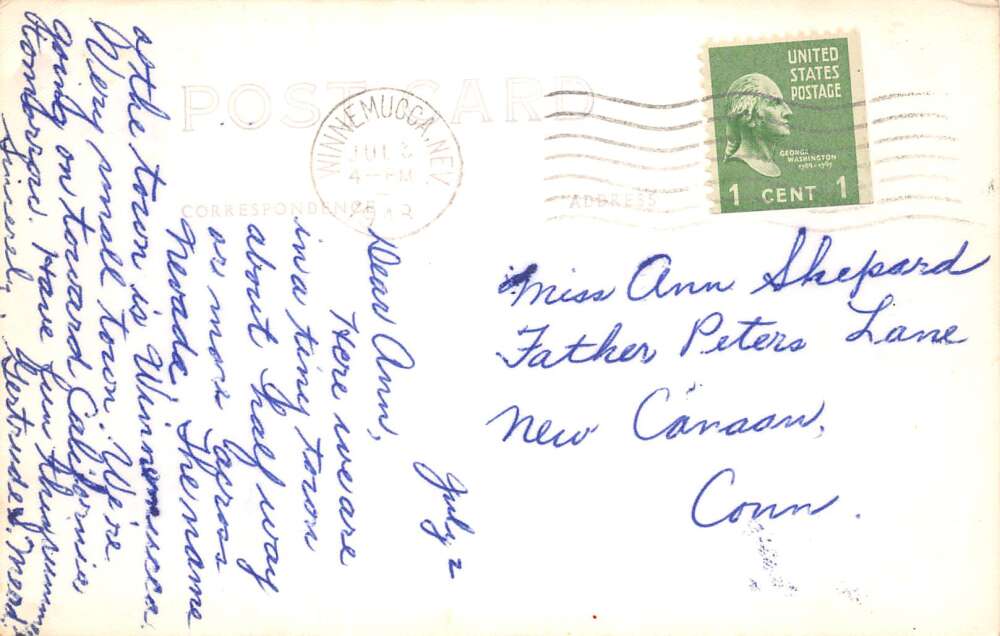 POST CARD
WINNEMUCCA, NEV.
JUL 3
4-PM
UNITED
STATES
POSTAGE
GEORGE
WASHINGTON
1789-1797
1 CENT 1
CORRESPONDENCE
ADDRESS
July 2
Dear Ann,
Here we are
in a tiny town
about half way
or more across
Nevada. The name
of the town is Winnemucca.
Very small town. We're
going on toward California
tomborrow. Have fun this summer
Sincerel,, Gertrude Mead
Miss Ann Shepard
Father Peters Lane
New Canaan,
Conn.